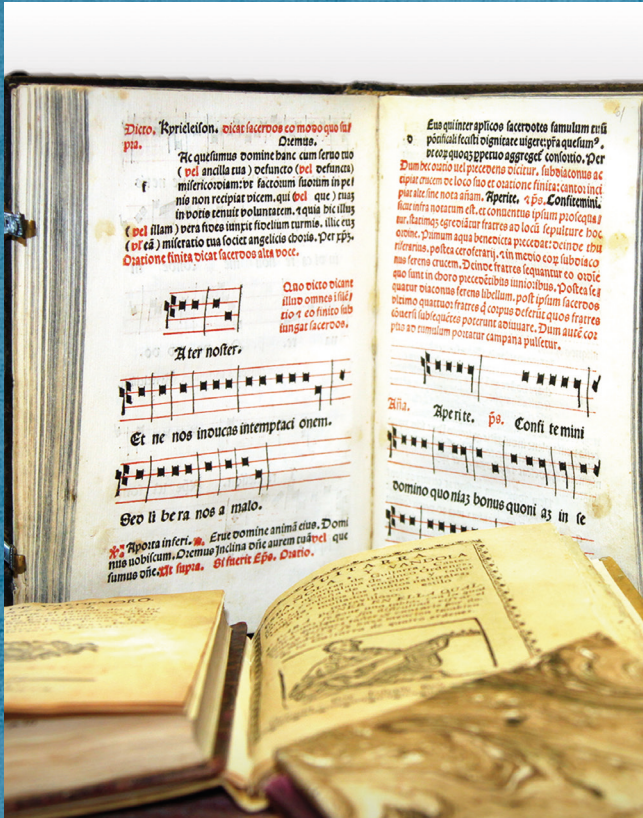 Dicto. Kyrieleison. dicat sacerdos eo modo quo su
pra.
Oremus.
Ac quesumus domine hanc cum seruo tuo
( vel ancilla tua ) defuncto (vel defuncta)
f misericordiam: vt factorum suorum in pe
nis non recipiat vicem, qui (vel que ) tuaz
in votis tenuit voluntatem. ⁊ quia hic illuz
( vel illam ) vera fides iunxit fidelium turmis. illic eu
( vl eā ) miseratio tua societ angelicis choris. Per xp̄z.
Oratione finita dicat sacerdos alta voce.
Quo dicto dicant
illud omnes i silē
tio ⁊ eo finito sub
iungat sacerdos.
Ater noster.
Et ne nos inducas intemptaci onem.
Sed li be ra nos a malo.
Aporta inferi. Erue domine animā eius. Domi
nus uobiscum. Oremus Jnclina dn̄e aurem tuā vel que
sumus dn̄e. Ut supra. Si fuerit Ep̄s. Oratio.
Eus qui inter aplicos sacerdotes famulum tuū
D pōtificali fecisti dignitate uigere: p̄ra quesum⁹.
vt eor quoqz ppetuo aggreget consortio. Per
Dum hec oratio uel precedens dicitur, subdiaconus ac
cipiat crucem de loco suo et oratione finita: cantor inci
piat alte sine nota añam. Aperite, ⁊ p̄s. Confitemini.
sicut infra notatum est. et conuentus ipsum prosequa
tur. statimqz egrediātur fratres ad locū sepulture hoc
ordine. Primum aqua benedicta precedat: deinde thu
riferarius. postea ceroferarij. ⁊ in medio eoꝝ subdiaco
nus ferens crucem. Deinde fratres sequantur eo ordie
quo sunt in choro precedētibus iunioribus. Postea se
quatur diaconus ferens libellum. post ipsum sacerdos
vltimo quattuor fratres q̄ corpus deferūt quos fratres
cōuersi subsequētes poterunt adiuuare. Dum autē cor
pus ad tumulum portatur campana pulsetur.
Aña. Ape ri te. p̄s. Confi te mini
domino quo niaz bonus quoni az in se
GUITARRA
VANDOLA